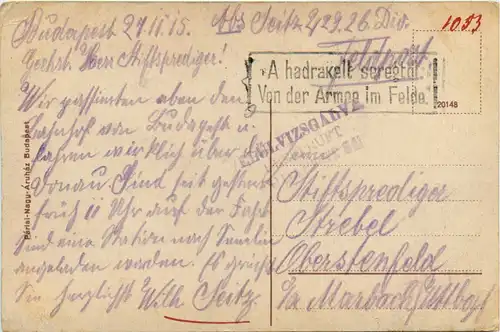 Budapest 27.11.15.
Geehrt. Herr Stiftsprediger!
Wir passierten eben den
Bahnhof von Budapest u.
fahren wirklich über die
Donau. Sind seit gestern
früh 11 Uhr auf der Fahrt
Sind eine Station nach Semlin
angeladen worden. Es grüßt
Sie herzlichst Wilh. Seitz.
Abs. Seitz 2/29. 26. Div.
1053
Feldpost.
A hadrakelt seregtől.
Von der Armee im Felde.
20148
Herrn
Stiftsprediger
Strebel
Oberstenfeld
Marbach Wttbg.
Párisi-Nagy-Áruház Budapest